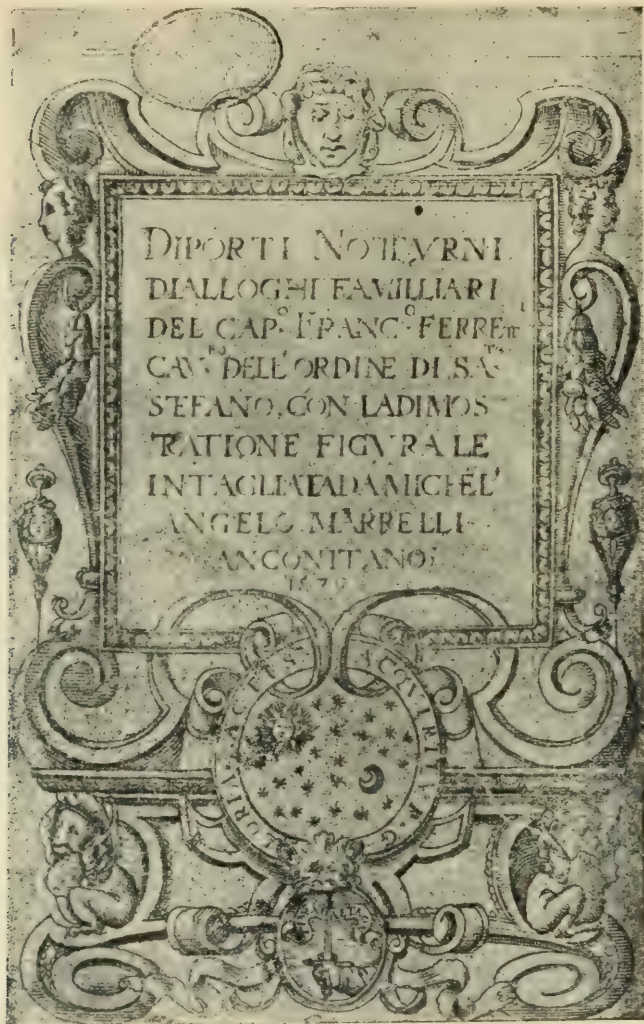 DIPORTI NOTTVRNI
DIALLOGHI FAMILLIARI
DEL CAPº FRANCº FERRETTI
CAVRO DELL'ORDINE DI SATO
STEFANO, CON LADIMOS
TRATIONE FIGVRALE
INTAGLIATADAMICHEL'
ANGELO MARRELLI
ANCONITANO
ACTVS ACQVIRITVR G
LORIA